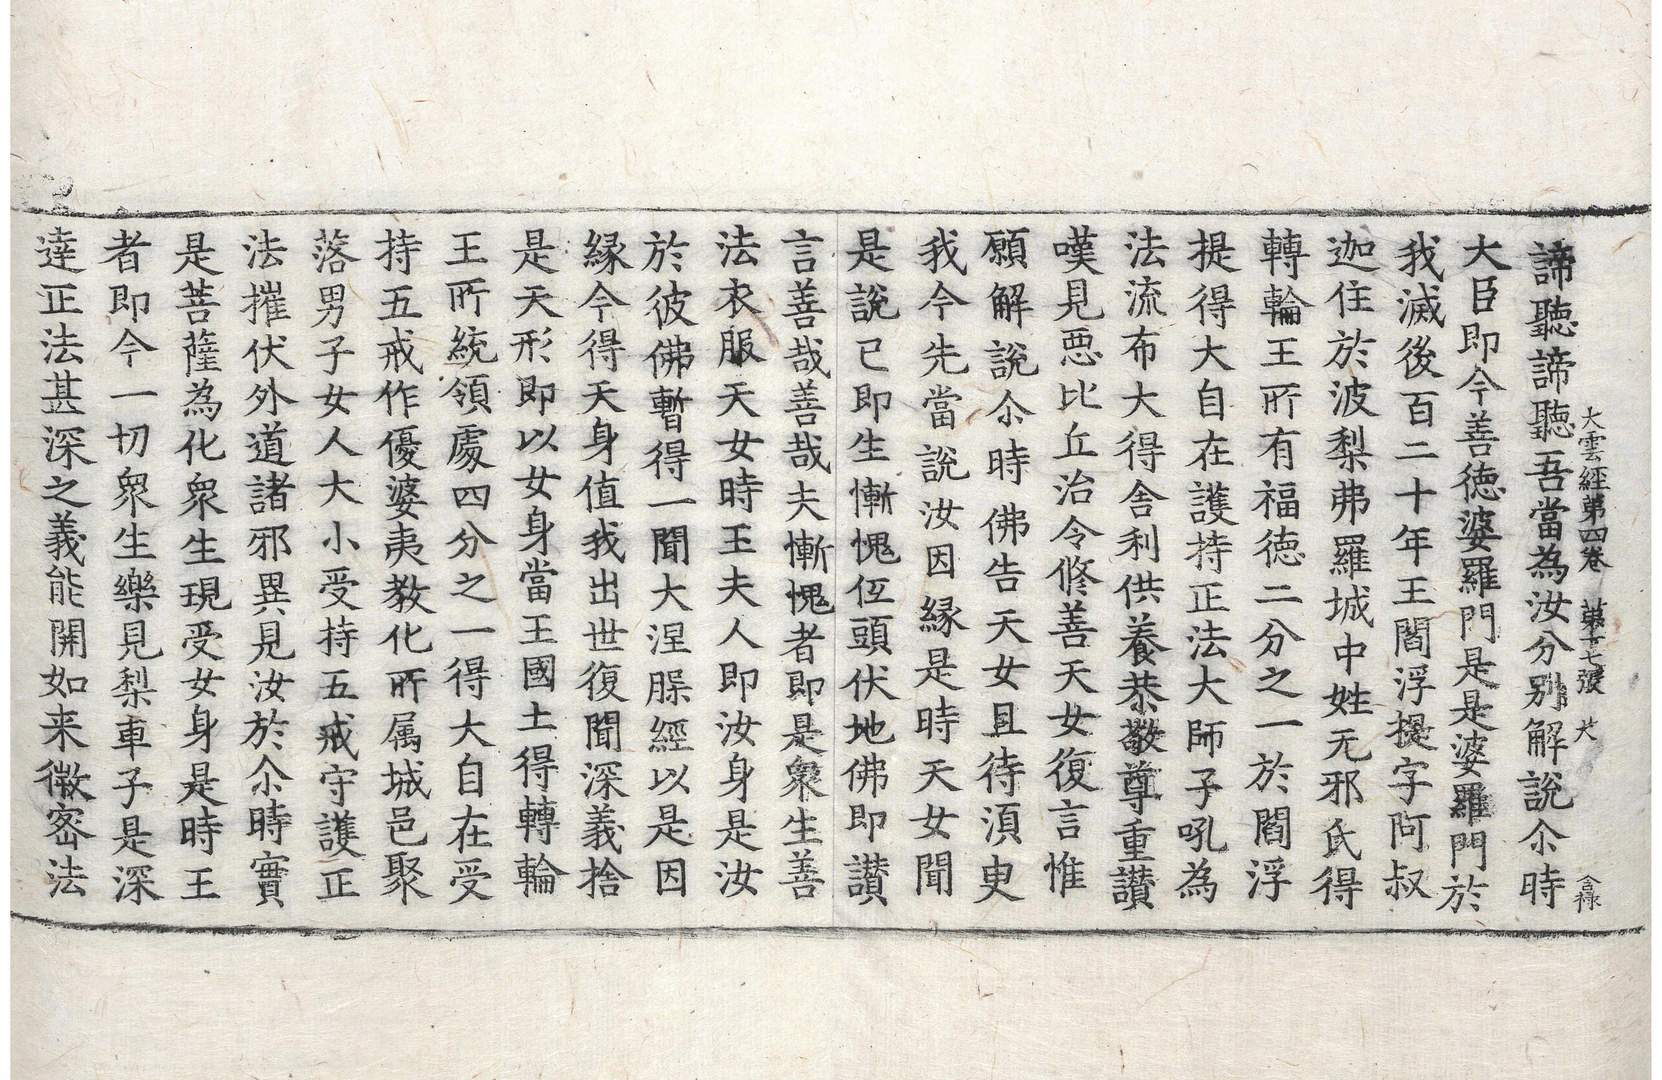 大雲經第四卷 第十七張 大 含祿
諦聽諦聽吾當為汝分別解說尒時
大臣即今善德婆羅門是是婆羅門於
我滅後百二十年王閻浮提字阿叔
迦住於波梨弗羅城中姓无邪氏得
轉輪王所有福德二分之一於閻浮
提得大自在護持正法大師子吼為
法流布大得舍利供養恭敬尊重讚
嘆見惡比丘治令修善天女復言惟
願解說尒時佛告天女且待湏臾
我今先當說汝因緣是時天女聞
是說已即生慚愧伍頭伏地佛即讚
言善哉善哉夫慚愧者即是衆生善
法衣服天女時王夫人即汝身是汝
於彼佛暫得一聞大涅槃經以是因
緣今得天身值我出世復聞深義捨
是天形即以女身當王國土得轉輪
王所統領處四分之一得大自在受
持五戒作優婆夷教化所属城邑聚
落男子女人大小受持五戒守護正
法摧伏外道諸邪異見汝於尒時實
是菩薩為化衆生現受女身是時王
者即今一切衆生樂見梨車子是深
達正法甚深之義能開如来微密法